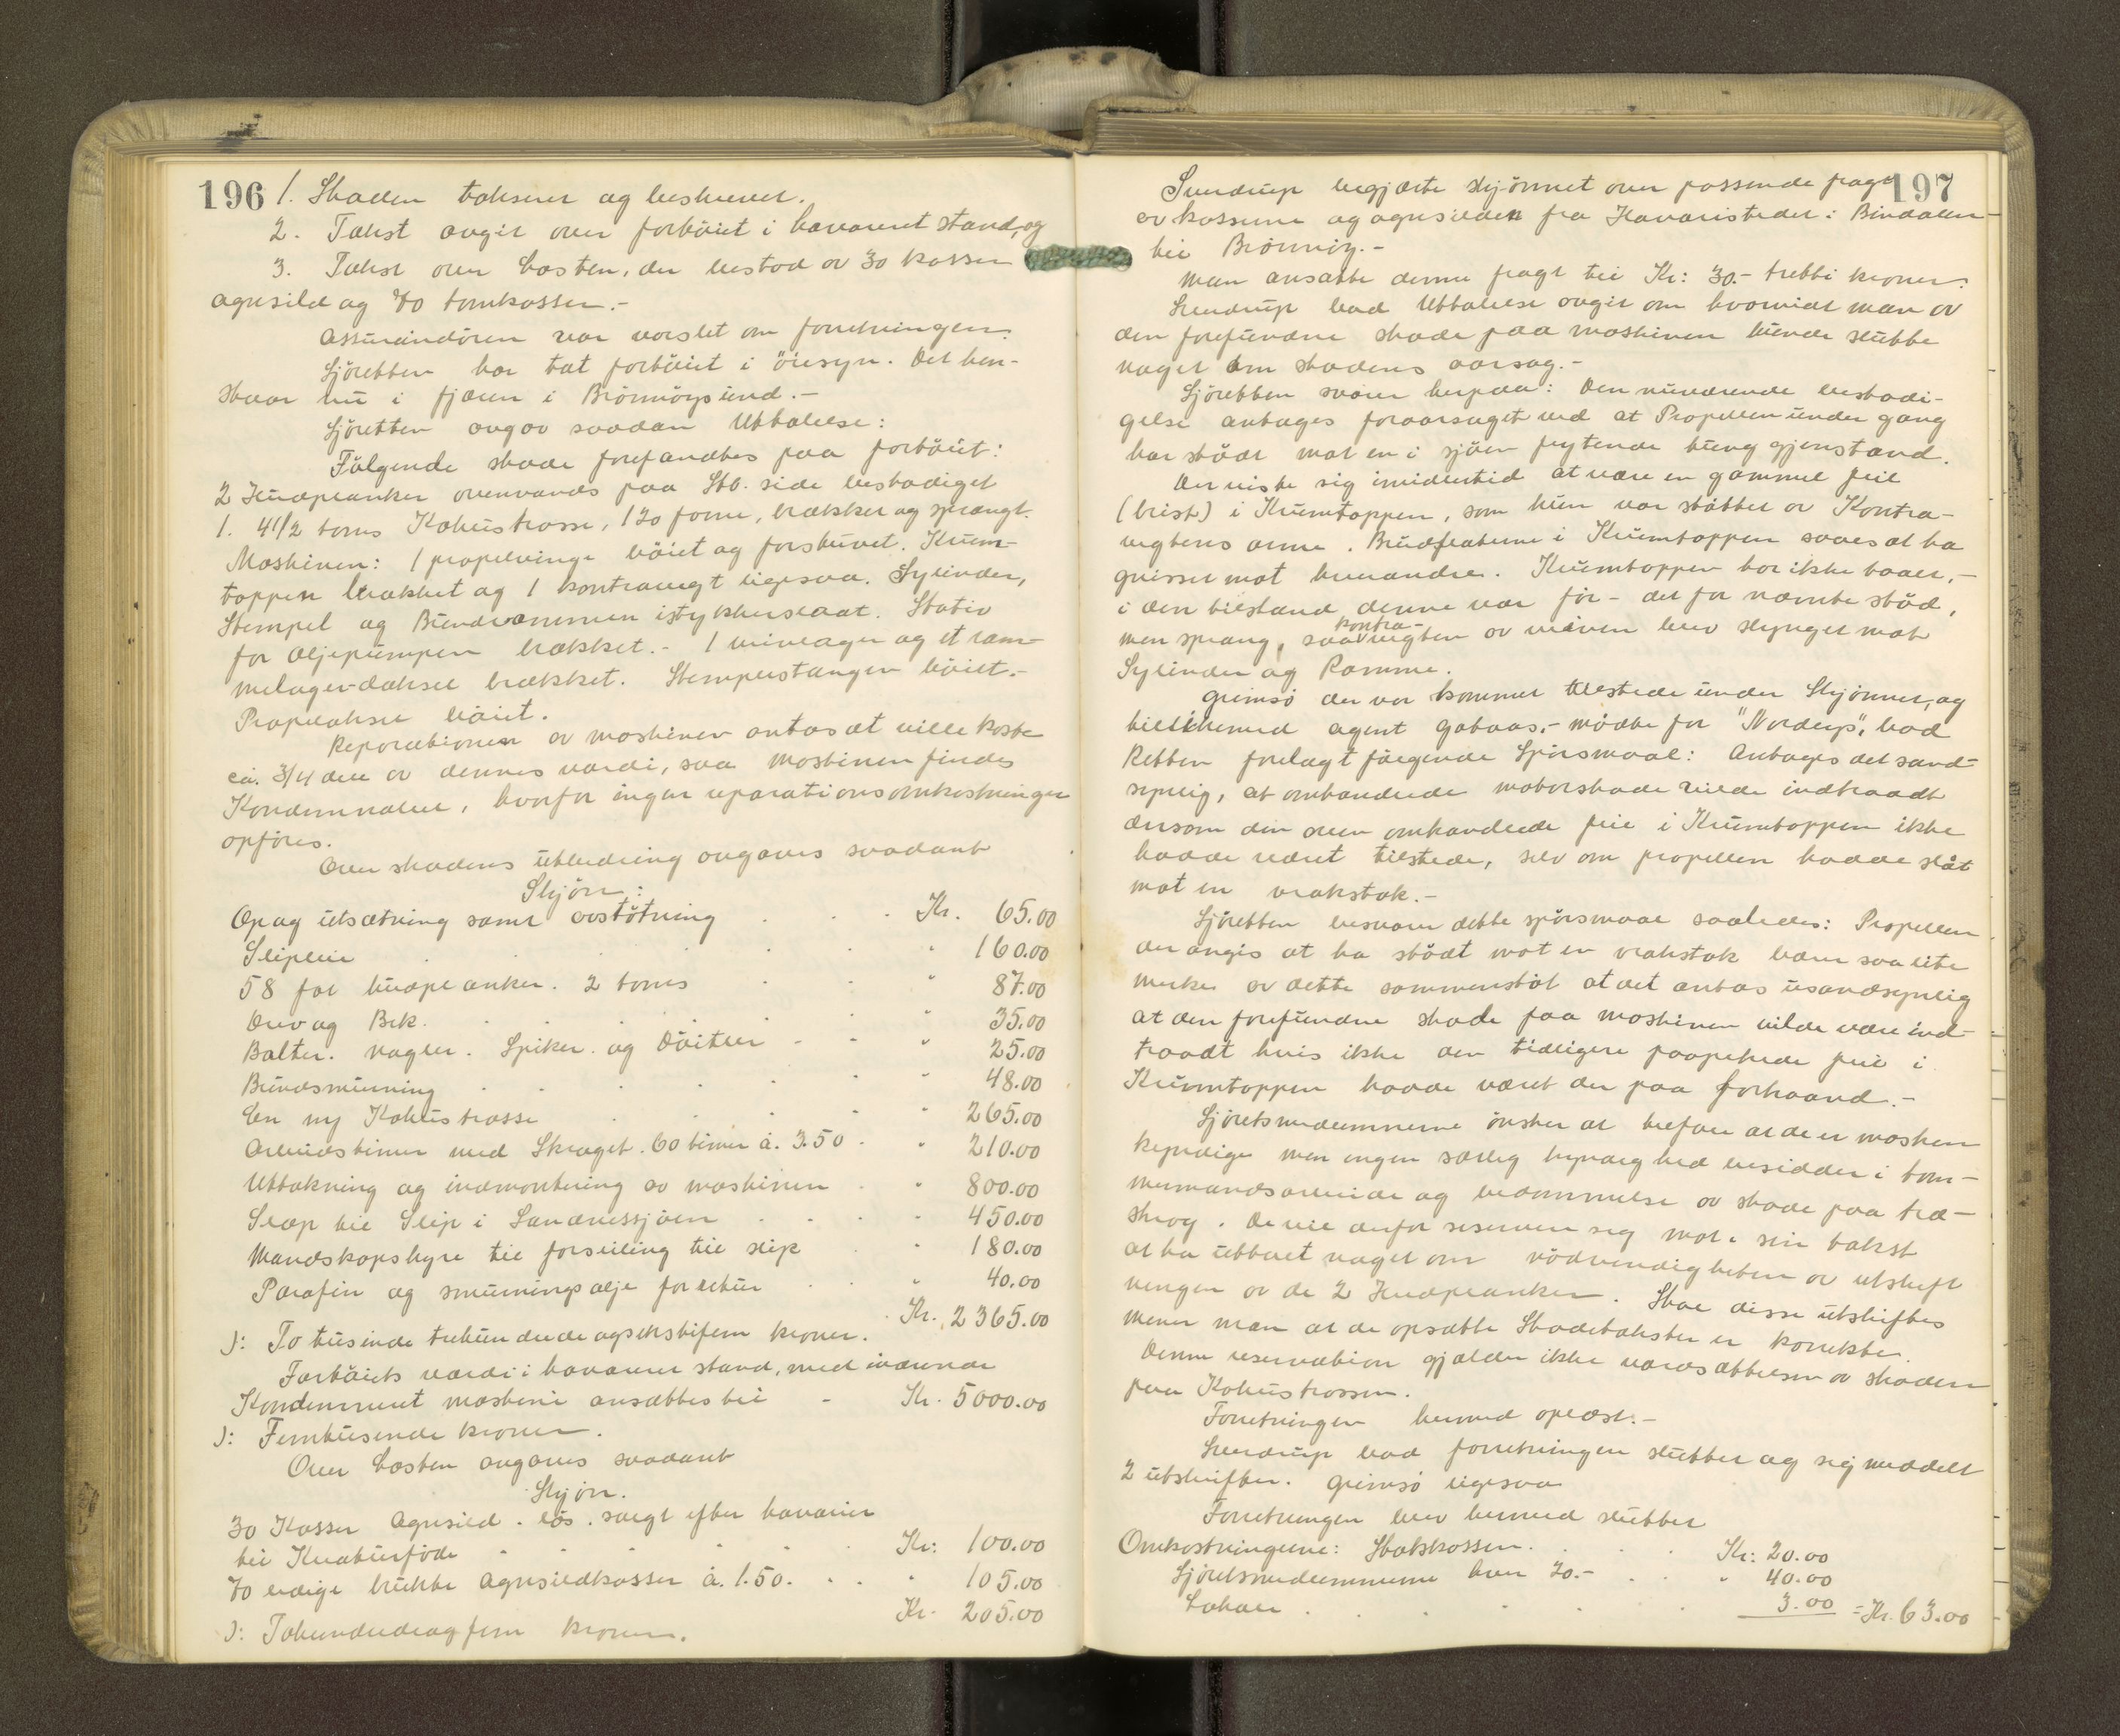 196
1. Skaden takseret og beskrevet.
2. Takst avgit over fartöiet i havareret stand, og
3. Takst over Lasten, der bestod av 30 kasser
agnsild og 70 tomkasser.-
Assurandören var varslet om forretningen.
Sjöretten har tat fartöiet i öiesyn. Det hen-
staar nu i fjæren i Brönnöysund.-
Sjöretten avgav saadan Uttalelse:
Fölgende skade forefandtes paa fartöiet:
2 Hudplanker ovenvands paa Stb. side beskadiget
1. 4 1/2 toms Kokustrosse, 120 favne, brækket og sprængt.
Maskinen: 1 propelvinge böiet og forskuvet. Krum-
tappen brækket og 1 kontravegt ligesaa. Sylinder,
Stempel og Bundrammen istykkerslaat. Stativ
for Oljepumpen brækket.- 1 veivlager og et ram-
melager-dæksel brækket. Stempelstangen böiet.-
Propelaksel böiet.
Reparationen av maskinen antas at ville koste
ca. 3/4 del av dennes værdi, saa maskinen findes
Kondemnabel, hvorfor ingen reparationsomkostninger
opföres.
Over skadens utbedring avgaves saadant
Skjön:
Op og utsætning samt avstötning Kr. 65.00
Slipleie " 160.00
58 fot hudplanker. 2 toms " 87.00
Drev og Bek. " 35.00
Bolter. nagler. Spiker. og Döitler " 25.00
Bundsmurning " 48.00
En ny Kokustrosse " 265.00
Arbeidstimer med Skroget. 60 timer á. 3.50 " 210.00
Uttakning og indmontering av maskinen " 800.00
Slæp til Slip i Sandnessjöen " 450.00
Mandskapshyre til forseiling til slip " 180.00
Parafin og smurningsolje for retur " 40.00
Kr. 2365.00
): To tusinde trehundrede og sekstifem kroner.
Fartöiets værdi i havareret stand, med iværende
Kondemneret maskine ansættes til - Kr. 5000.00
): Femtusinde kroner.
Over Lasten avgaves saadant
Skjön.
30 Kasser Agnsild. lös. solgt efter havariet
til Kreaturföde Kr: 100.00
70 ledige brukte agnsildkasser á. 1.50. " 105.00
Kr. 205.00
): Tohundredeogfem kroner.
197
Svendrup begjærte skjönnet over passende fragt
av kasserne og agnsilden fra Havaristedet i Bindalen
til Brönnöy.-
Man ansatte denne fragt til Kr: 30.- tretti kroner.
Svendrup bad Uttalelse avgit om hvorvidt man av
den forefundne skade paa maskinen kunde slutte
noget om skadens aarsag.-
Sjöretten svarer herpaa: Den nuværende beskadi-
gelse antages foraarsaget ved at Propellen under gang
har stödt mot en i sjöen flytende tung gjenstand.
Der viste sig imidlertid at være en gammel feil
(brist) i Krumtappen, som kun var støttet av Kontra-
vegtens arme. Brudflaterne i Krumtappen saaes at ha
gnisset mot hverandre. Krumtappen har ikke taalt,-
i den tilstand denne var för - det før nævnte stöd,
men sprang, saa kontra-vegten av veiven blev slynget mot
Sylinder og Ramme.
Grimsø der var kommet tilstede under Skjönnet, og
tillikemed agent Gabaas,- mödte for "Nordlys", bad
Retten forelagt følgende Spörsmaal: Antages det sand-
synlig, at omhandlede motorskade vilde indtraadt
dersom den oven omhandlede feil i Krumtappen ikke
hadde været tilstede, selv om propellen hadde slåt
mot en vrakstok.-
Sjöretten besvarer dette spörsmaal saaledes: Propellen
der angis at ha stödt mot en vrakstok bærer saa lite
merke av dette sammenstöt at det antas usandsynlig
at den forefundne skade paa maskinen vilde være ind-
traadt hvis ikke den tidligere paapekede feil i
Krumtappen hadde været der paa forhaand.-
Sjöretsmedlemmerne önsker at tilföie at de er maskin
kyndige men ingen særlig kyndighed besidder i töm-
mermandsarbeide og bedömmelse av skade paa træ-
skrog. De vil derfor reservere sig mot i sin takst
at ha uttalt noget om nödvendigheten av utskift
ningen av de 2 Hudplanker. Skal disse utskiftes
mener man at de opsatte Skadetakster er korrekte.
Denne reservation gjælder ikke værdsættelsen av skaden
paa Kokustrossen.
Forretningen hermed oplæst.-
Svendrup bad forretningen sluttet og sig meddelt
2 utskrifter. Grimsø ligesaa
Forretningen blev hermed sluttet
Omkostningerne: Statskassen. Kr: 20.00
Sjöretsmedlemmerne hver 20.- " 40.00
Lokale 3.00 = Kr. 63.00